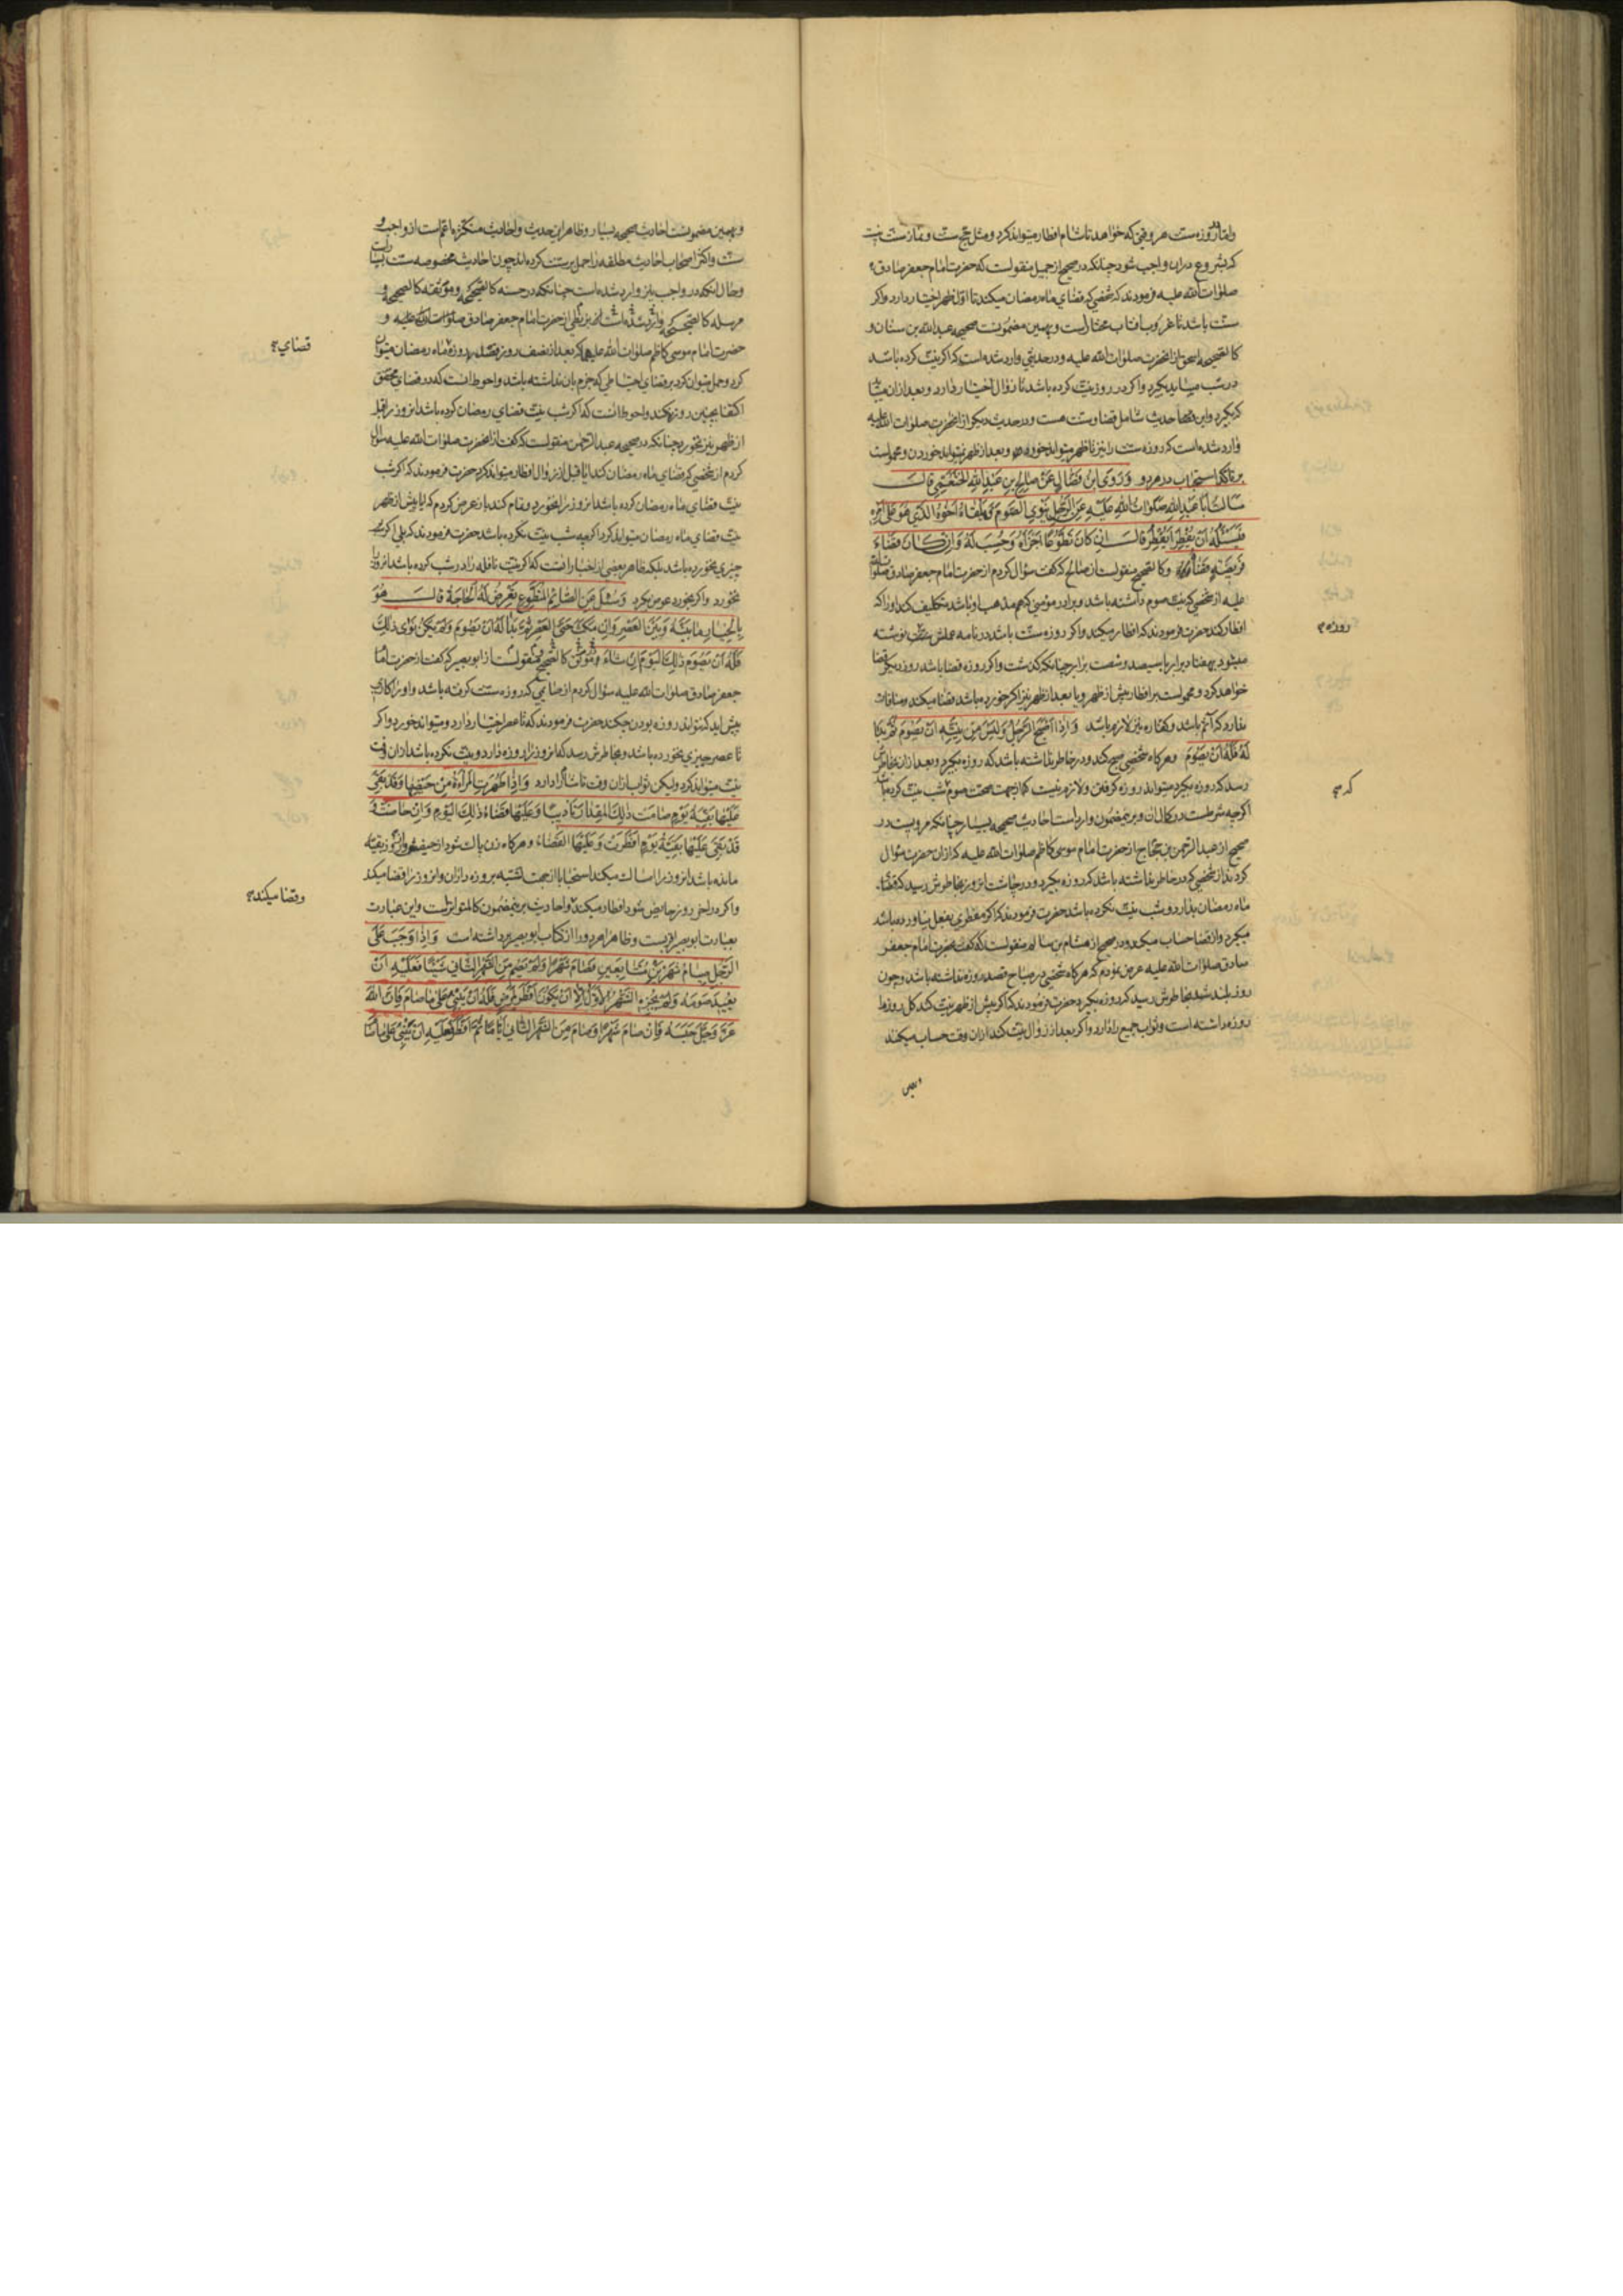 واما روزه سنت هر وقتی که خواهد تا شام افطار میتواند کرد و مثل حج سنت و نماز سنت نیست
که بشروع دران واجب شود چنانکه در صحیح از جمیل منقولست که حضرت امام جعفر صادق
صلوات الله علیه فرمودند که شخصی که قضای ماه رمضان میکند تا اول ظهر اختیار دارد واکر
سنت باشد تا غروب افتاب مختار است و بهمین مضمونست صحیحه عبدالله بن سنان و
کالصحیحه اسحق از انحضرت صلوات الله علیه و در حدیثی وارد شده است که اکر نیت کرده باشد
در شب میباید بکیرد واکر در روز نیت کرده باشد تا زوال اختیار دارد و بعد ازان میباید
که بکیرد واین حدیث شامل قضا و سنت هست و در حدیث دیکر از انحضرت صلوات الله علیه
وارد شده است که روزه سنت را نیز تا ظهر میتواند خورد و بعد از ظهر نمیتواند خوردن و محمولست
بر تاکد استحباب در هر دو وَرَوَى ابْنُ فَضَّالٍ عَنْ صَالِحِ بْنِ عَبْدِ اللهِ الْخَثْعَمِيِّ قَالَ
سَاَلْتُ اَبَا عَبْدِ اللهِ صَلَوَاتُ اللهِ عَلَيْهِ عَنِ الرَّجُلِ يَنْوِي الصَّوْمَ فَيَلْقَاهُ اَخُوهُ الَّذِي هُوَ عَلَى اَمْرِهِ
فَيَسْئَلُهُ اَنْ يُفْطِرَ اَيُفْطِرُ قَالَ اِنْ كَانَ تَطَوُّعًا اَجْزَاَهُ وَحُسِبَ لَهُ وَاِنْ كَانَ قَضَاءَ
فَرِيضَةٍ قَضَاهُ و کالصحیح منقولست از صالح که کفت سؤال کردم از حضرت امام جعفر صادق صلوات الله
علیه از شخصی که نیت صوم داشته باشد و برادر مؤمنی که هم مذهب او باشد تکلیف کند او را که
افطار کند حضرت فرمودند که افطار میکند واکر روزه سنت باشد در نامه عملش نوشته
میشود بهفتاد برابر یا سیصد و شصت برابر چنانکه کذشت واکر روزه قضا باشد روز دیکر قضا
خواهد کرد و محمولست بر افطار پیش از ظهر و یا بعد از ظهر نیز اکر خورده باشد قضا میکند و منافات
ندارد که آثم باشد و کفاره نیز لازم باشد وَاِذَا اَصْبَحَ الرَّجُلُ وَلَيْسَ مِنْ نِيَّتِهِ اَنْ يَصُومَ ثُمَّ بَدَا
لَهُ فَلَهُ اَنْ يَصُومَ و هرکاه شخصی صبح کند و در خاطر نداشته باشد که روزه بکیرد و بعد ازان بخاطرش
رسد که روزه بکیرد میتواند روزه کرفتن و لازم نیست که از جهت صحت صوم شب نیت کرده باشد
اکرچه شرطست در کمال ان و برین مضمون وارد است احادیث صحیحه بسیار چنانکه مرویست در
صحیح از عبدالرحمن بن حجاج از حضرت امام موسی کاظم صلوات الله علیه که ازان حضرت سؤال
کردند از شخصی که در خاطر نداشته باشد که روزه بکیرد و در چاشت انروز بخاطرش رسید که قضای
ماه رمضان بدارد و شب نیت نکرده باشد حضرت فرمودند که اکر مفطری بفعل نیاورده باشد
میکیرد و از قضا حساب میکند و در صحیح از هشام بن سالم منقولست که کفت بحضرت امام جعفر
صادق صلوات الله علیه عرض نمودم که هرکاه شخصی در صباح قصد روزه نداشته باشد و چون
روز بلند شد بخاطرش رسید که روزه بکیرد حضرت فرمودند که اکر پیش از ظهر نیت کند کل روز را
روزه داشته است و ثواب جمیع را دارد واکر بعد از زوال نیت کند ازان وقت حساب میکند
روزه
که
و بهمین
و بهمین مضمونست احادیث صحیحه بسیار و ظاهر این حدیث و احادیث متکثره اعم است از واجب و
سنت و اکثر اصحاب احادیث مطلقه را حمل بر سنت کرده اند چون احادیث مخصوصه سنت بسیار است
و حال انکه در واجب نیز وارد شده است چنانکه در حسنه کالصحیحه و موثقه کالصحیحه و
مرسله کالصحیحه وارد شده است از بزنطی از حضرت امام جعفر صادق صلوات الله علیه و
حضرت امام موسی کاظم صلوات الله علیهما که بعد از نصف روز قصد روزه ماه رمضان میتوان
کرد و حمل میتوان کرد بر قضای احتیاطی که جزم بان نداشته باشد و احوط انست که در قضای محقق
اکتفا بچنین روزه نکند و احوط انست که اکر شب نیت قضای رمضان کرده باشد انروز را قبل
از ظهر نیز نخورد چنانکه در صحیحه عبدالرحمن منقولست که کفت از انحضرت صلوات الله علیه سؤال
کردم از شخصی که قضای ماه رمضان کند ایا قبل از زوال افطار میتواند کرد حضرت فرمودند که اکر شب
نیت قضای ماه رمضان کرده باشد انروز را نخورد و تمام کند باز عرض کردم که ایا پیش از ظهر
نیت قضای ماه رمضان میتواند کرد اکرچه شب نیت نکرده باشد حضرت فرمودند که بلی اکر
چیزی نخورده باشد بلکه ظاهر بعضی از اخبار انست که اکر نیت نافله را در شب کرده باشد انروز را
نخورد واکر بخورد عوض بکیرد وَسُئِلَ عَنِ الصَّائِمِ الْمُتَطَوِّعِ تَعْرِضُ لَهُ الْحَاجَةُ قَالَ هُوَ
بِالْخِيَارِ مَا بَيْنَهُ وَبَيْنَ الْعَصْرِ وَاِنْ مَكَثَ حَتَّى الْعَصْرِ ثُمَّ بَدَا لَهُ اَنْ يَصُومَ وَلَمْ يَكُنْ نَوَى ذَلِكَ
فَلَهُ اَنْ يَصُومَ ذَلِكَ الْيَوْمَ اِنْ شَاءَ و موثق کالصحیح منقولست از ابو بصیر که کفت از حضرت امام
جعفر صادق صلوات الله علیه سؤال کردم از صایمی که روزه سنت کرفته باشد و او را کاری
پیش اید که نتواند روزه بودن چکند حضرت فرمودند که تا عصر اختیار دارد و میتواند خورد واکر
تا عصر چیزی نخورده باشد و بخاطرش رسد که انروز را روزه دارد و نیت نکرده باشد ازان وقت
نیت میتواند کرد ولیکن ثواب ازان وقت تا شام را دارد وَاِذَا طَهُرَتِ الْمَرْاَةُ مِنْ حَيْضِهَا وَقَدْ بَقِيَ
عَلَيْهَا بَقِيَّةُ يَوْمٍ صَامَتْ ذَلِكَ الْمِقْدَارَ تَادِيبًا وَعَلَيْهَا قَضَاءُ ذَلِكَ الْيَوْمِ وَاِنْ حَاضَتْ وَ
قَدْ بَقِيَ عَلَيْهَا بَقِيَّةُ يَوْمٍ اَفْطَرَتْ وَعَلَيْهَا الْقَضَاءُ و هرکاه زن پاک شود از حیض و از روز بقیه
مانده باشد انروز را امساک میکند استحبابا از جهت تشبه بروزه داران و انروز را قضا میکند
واکر در اخر روز حایض شود افطار میکند و احادیث برین مضمون کالمتواتر است و این عبارت
بعبارت ابو بصیر اقربست و ظاهرا هر دو را از کتاب ابو بصیر برداشته است وَاِذَا وَجَبَ عَلَى
الرَّجُلِ صِيَامُ شَهْرَيْنِ مُتَتَابِعَيْنِ فَصَامَ شَهْرًا وَلَمْ يَصُمْ مِنَ الشَّهْرِ الثَّانِي شَيْئًا فَعَلَيْهِ اَنْ
يُعِيدَ صَوْمَهُ وَلَمْ يُجْزِهِ الشَّهْرُ الْاَوَّلُ اِلَّا اَنْ يَكُونَ اَفْطَرَ لِمَرَضٍ فَلَهُ اَنْ يَبْنِيَ عَلَى مَا صَامَ فَاِنَّ اللهَ
عَزَّ وَجَلَّ حَبَسَهُ فَاِنْ صَامَ شَهْرًا وَصَامَ مِنَ الشَّهْرِ الثَّانِي اَيَّامًا ثُمَّ اَفْطَرَ فَعَلَيْهِ اَنْ يَبْنِيَ عَلَى مَا صَامَ
قضای
وقضا میکند